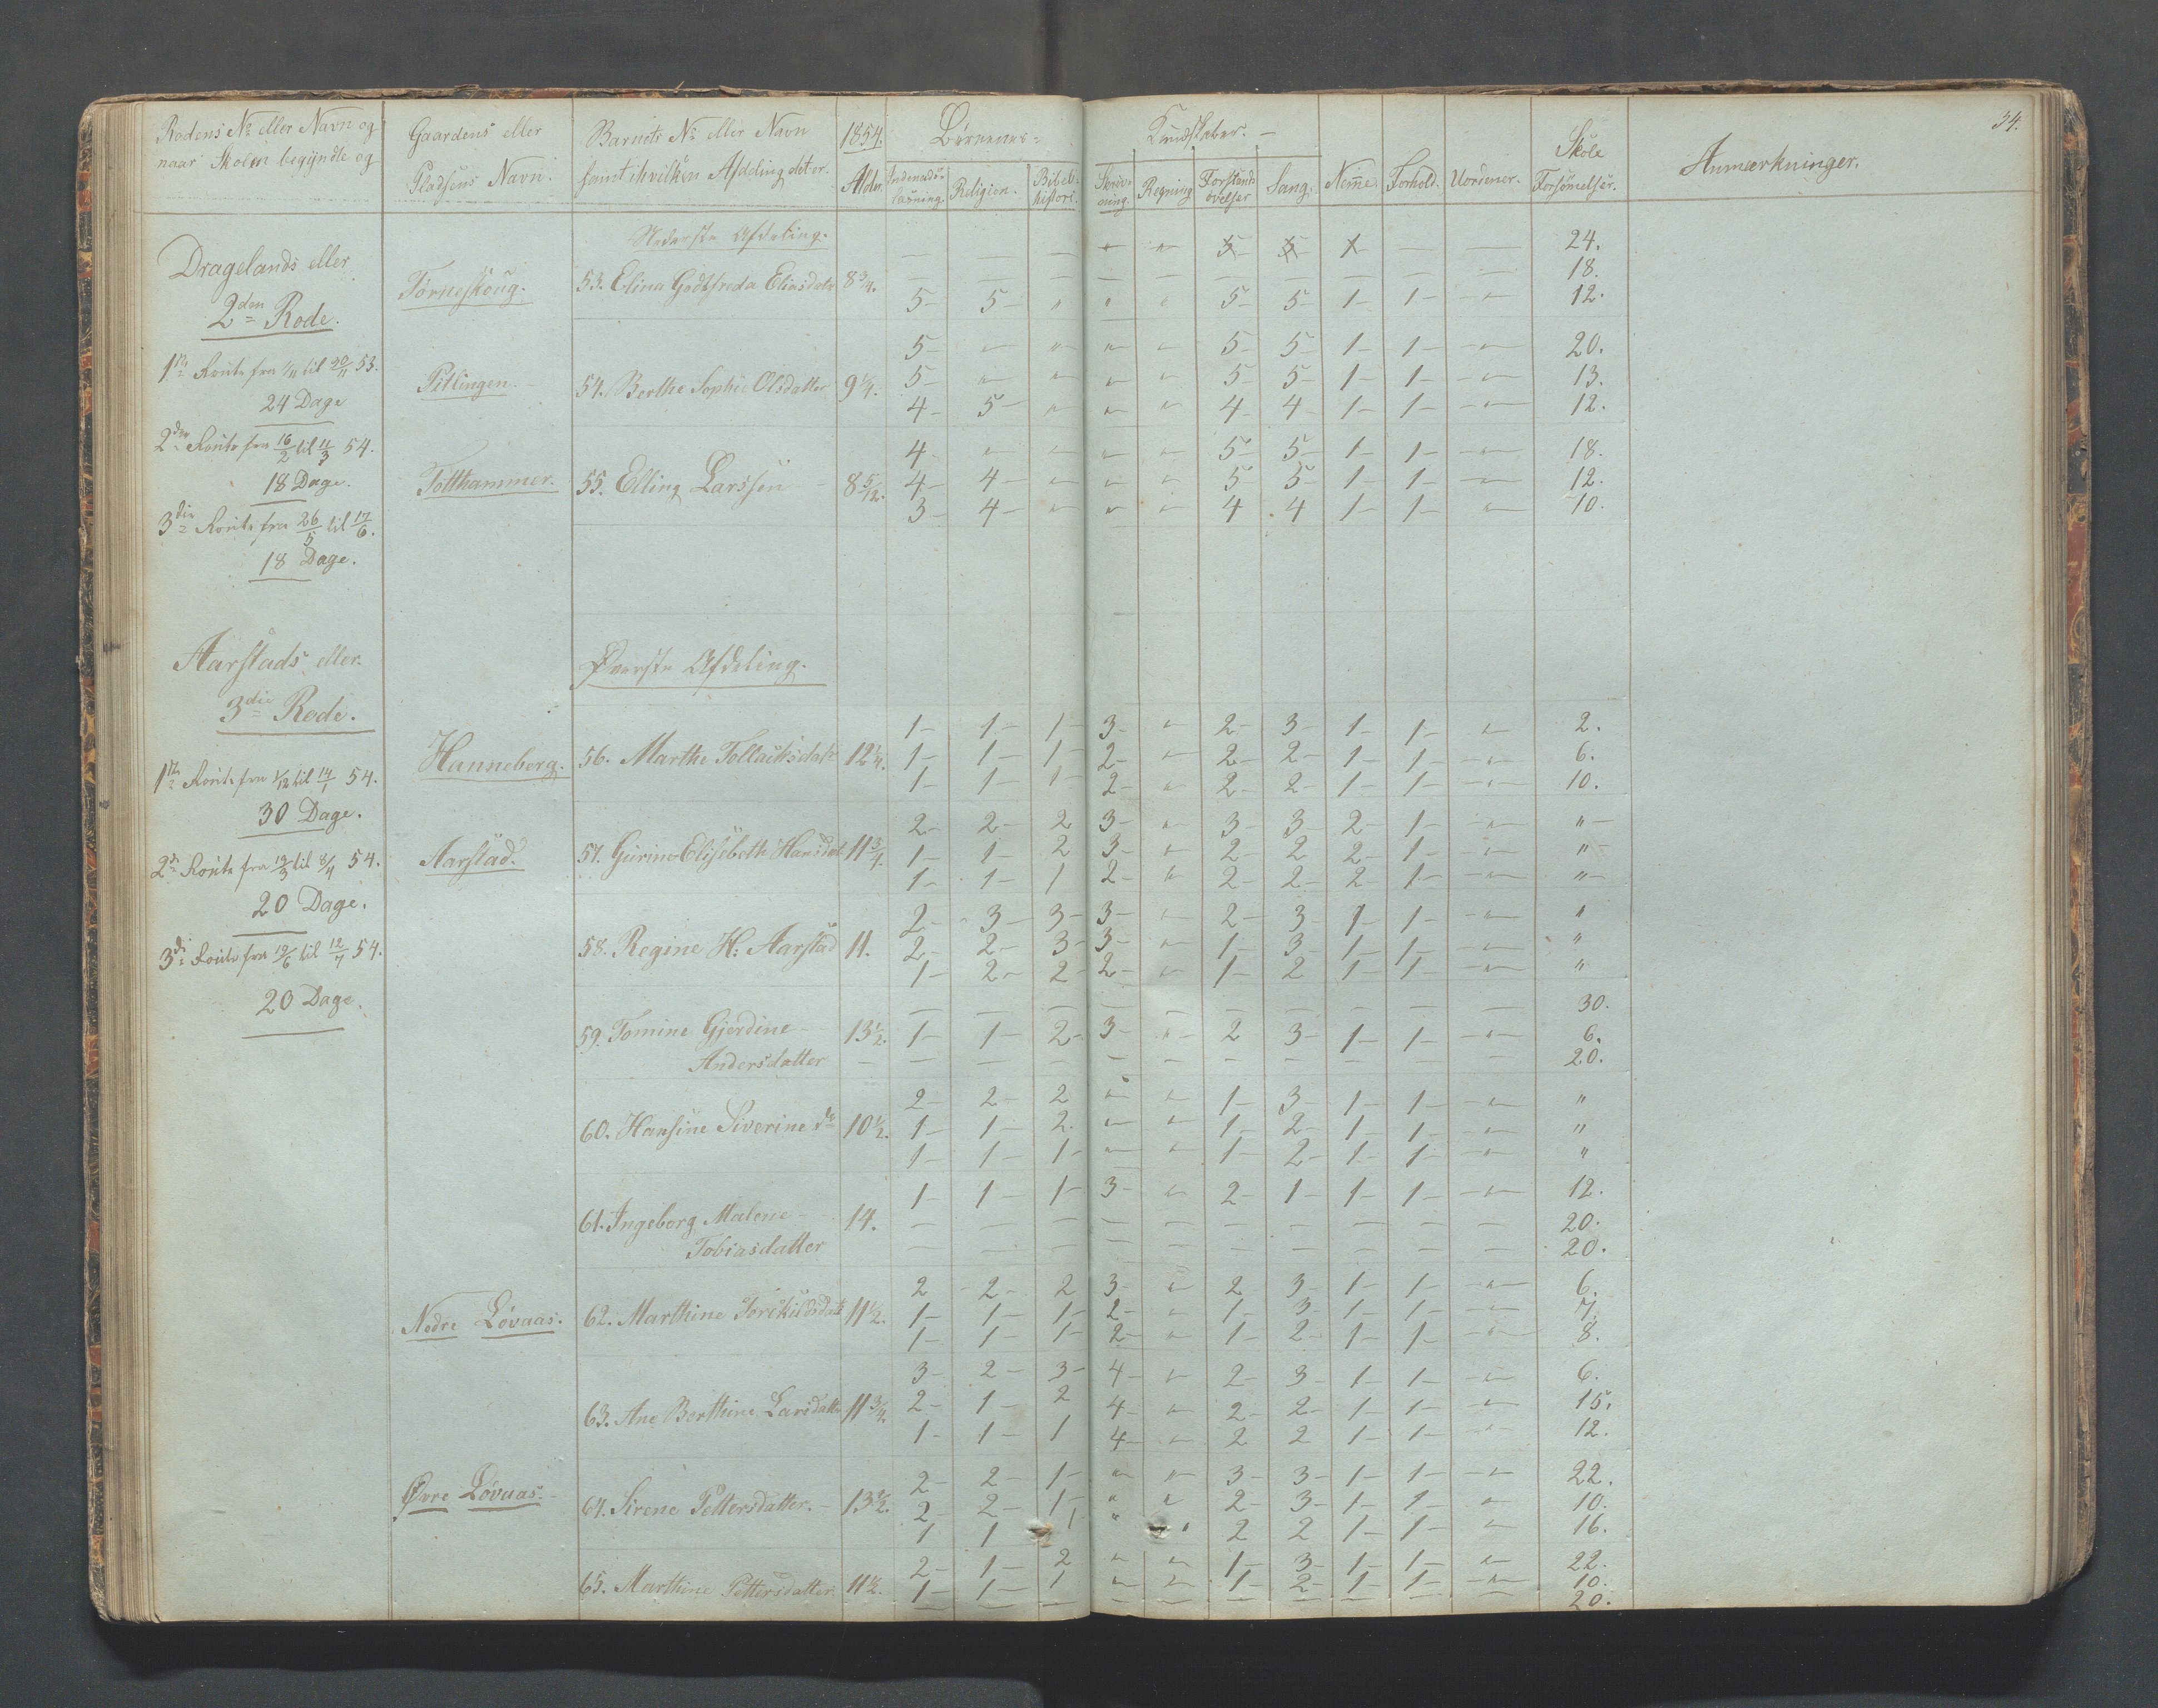 34.
Rodens No eller Navn og naar Skolen begyndte og
Gaardens eller Pladsens Navn.
Barnets No eller Navn samt i hvilken Afdeling det er.
1854. Alder.
Børnenes= Kundskaber. –
Religion. Bibelhistorie. Skrivning. Regning Forstandsøvelser Sang. Nemme. Forhold. Uordener. Skole Forsömmelser. Anmærkninger.
Nederste Afdeling.
Dragelands eller
2den Rode.
1ste Route fra 1/11 til 30/11 53.
24 Dage
2den Route fra 16/2 til 11/3 54.
18 Dage.
3die Route fra 26/5 til 17/6.
18 Dage.
– – – " " 5 5 1 – – 24.
Torneskoug. 53. Elina Godtfreda Eliasdatr 8 3/4. – – – – – – – – – – 18.
5– 5– " " " 5– 5– 1– 1– –"– 12.
5– " " " " 5– 5– 1– 1– –"– 20.
Pitlingen. 54. Berthe Sophie Olsdatter 9 1/4. 5– " " " " 5– 5– 1– 1– –"– 13.
4– 5– " " " 4– 4– 1– 1– –"– 12.
4– " " " " 5– 5– 1– 1– –"– 18.
Totthammer. 55. Elling Larssen – 8 5/12. 4– 4– " " " 5– 5– 1– 1– –"– 12.
3– 4– " " " 4 4 1– 1– " 10.
Aarstads eller
3die Rode.
1ste Route fra 1/12 til 14/1 54.
30 Dage.
2d Route fra 13/3 til 8/4 54.
20 Dage.
3di Route fra 19/6 til 12/7 54.
20 Dage.
Øverste Afdeling.
1– 1– 1– 3– " 2– 3– 1– 1– " 2.
Hanneberg. 56. Marthe Tollacksdatr 12 1/4. 1– 1– 1– 2– " 2– 2– 1– 1– –"– 6.
1– 1– 1– 2– " 2– 2– 1– 1– –"– 10.
2– 2– 2 3– " 3– 3– 2– 1– –"– "–
Aarstad. 57. Gurine Elisebeth Hansdat 11 3/4. 1– 1– 2 3– " 2– 2 2– 1– –"– "–
1– 1– 1 2– " 2– 2– 2– 1– –"– "–
2– 3– 3– 3– " 2– 3– 1– 1– –"– "
58. Regine H: Aarstad 11. 2– 2– 3– 3– " 1– 3– 1– 1– –"– "
1– 2– 2– 2– " 1– 2 1– 1– –"– "
– – – – – – – – – – 30.
59. Tomine Gjerdine 13 1/2. 1– 1– 2– 3– " 2 3– 1– 1– " 6.
Andersdatter – – – – – – – – – – – 20.
2– 2– 2 " " 1– 3– 1– 1– –"– "
60. Hansine Siverine do 10 1/2. 1– 1– 2. " " 1– 2– 1– 1– –"– "
1– 1– 1– " " 1– 2– 1– 1– –"– "
1– 1– 1– 3– " 2– 1– 1– 1– –"– 12.
61. Ingeborg Malene – 14. – – – – – – – – – – 20.
Tobiasdatter – – – – – – – – – 20.
2 2– 2 3– " 2 3– 1– 1– –"– 6.
Nedre Lövaas. 62. Marthine Torkildsdatr 11 1/2. 1– 1– 1– 2– " 1– 3– 1– 1– –"– 7.
1– 1– 1– 2– " 1– 2– 1– 1– –"– 8.
3– 2– 3– 4– " 2– 3– 1– 1– –"– 6.
63. Ane Berthine Larsdatter 11 3/4. 2– 1– 2 4– " 2– 2– 1– 1– –"– 15.
1– 1– 1 4– " 2 2 1– 1– –"– 12.
2– 2– 1– " " 3– 3– 1– 1– –"– 22.
Øvre Lövaas. 64. Sirene Pettersdatter. – 13 1/2. 2– 2– 1– " " 2– 3– 1– 1– " 10.
1 1 1 " " 2 2 1– 1– " 16.
2– 1– 2 " " 1– 3– 1– 1– " 22.
65. Marthine Pettersdatter 11 1/2. 1– 1– 1 " " 1– 2– 1– 1– –"– 10.
– – – – – – – – – – 20.